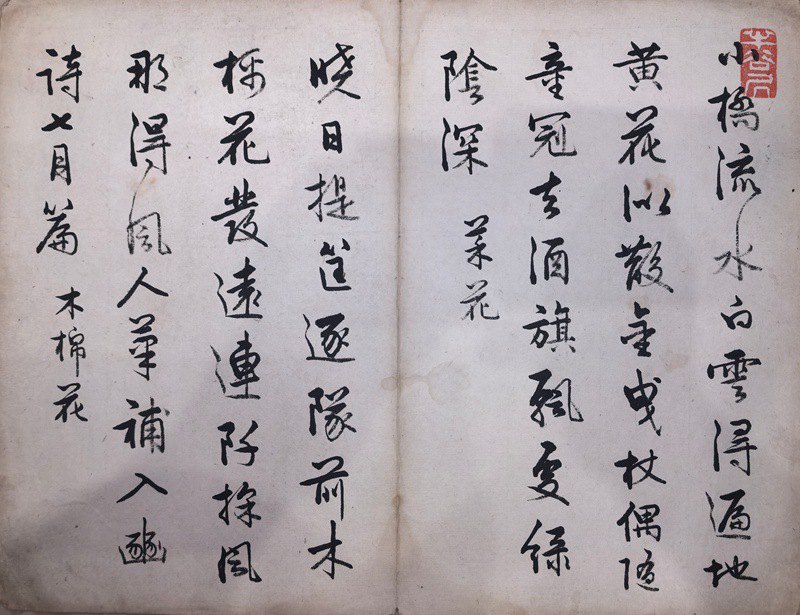 小橋流水白雲潯遍地
黃花似散金曳杖偶隨
童冠去酒旗飄處綠
陰深 菜花
曉日提筐逐隊前木
棉花發遠連阡採風
那得風人筆補入豳
詩七月篇 木棉花